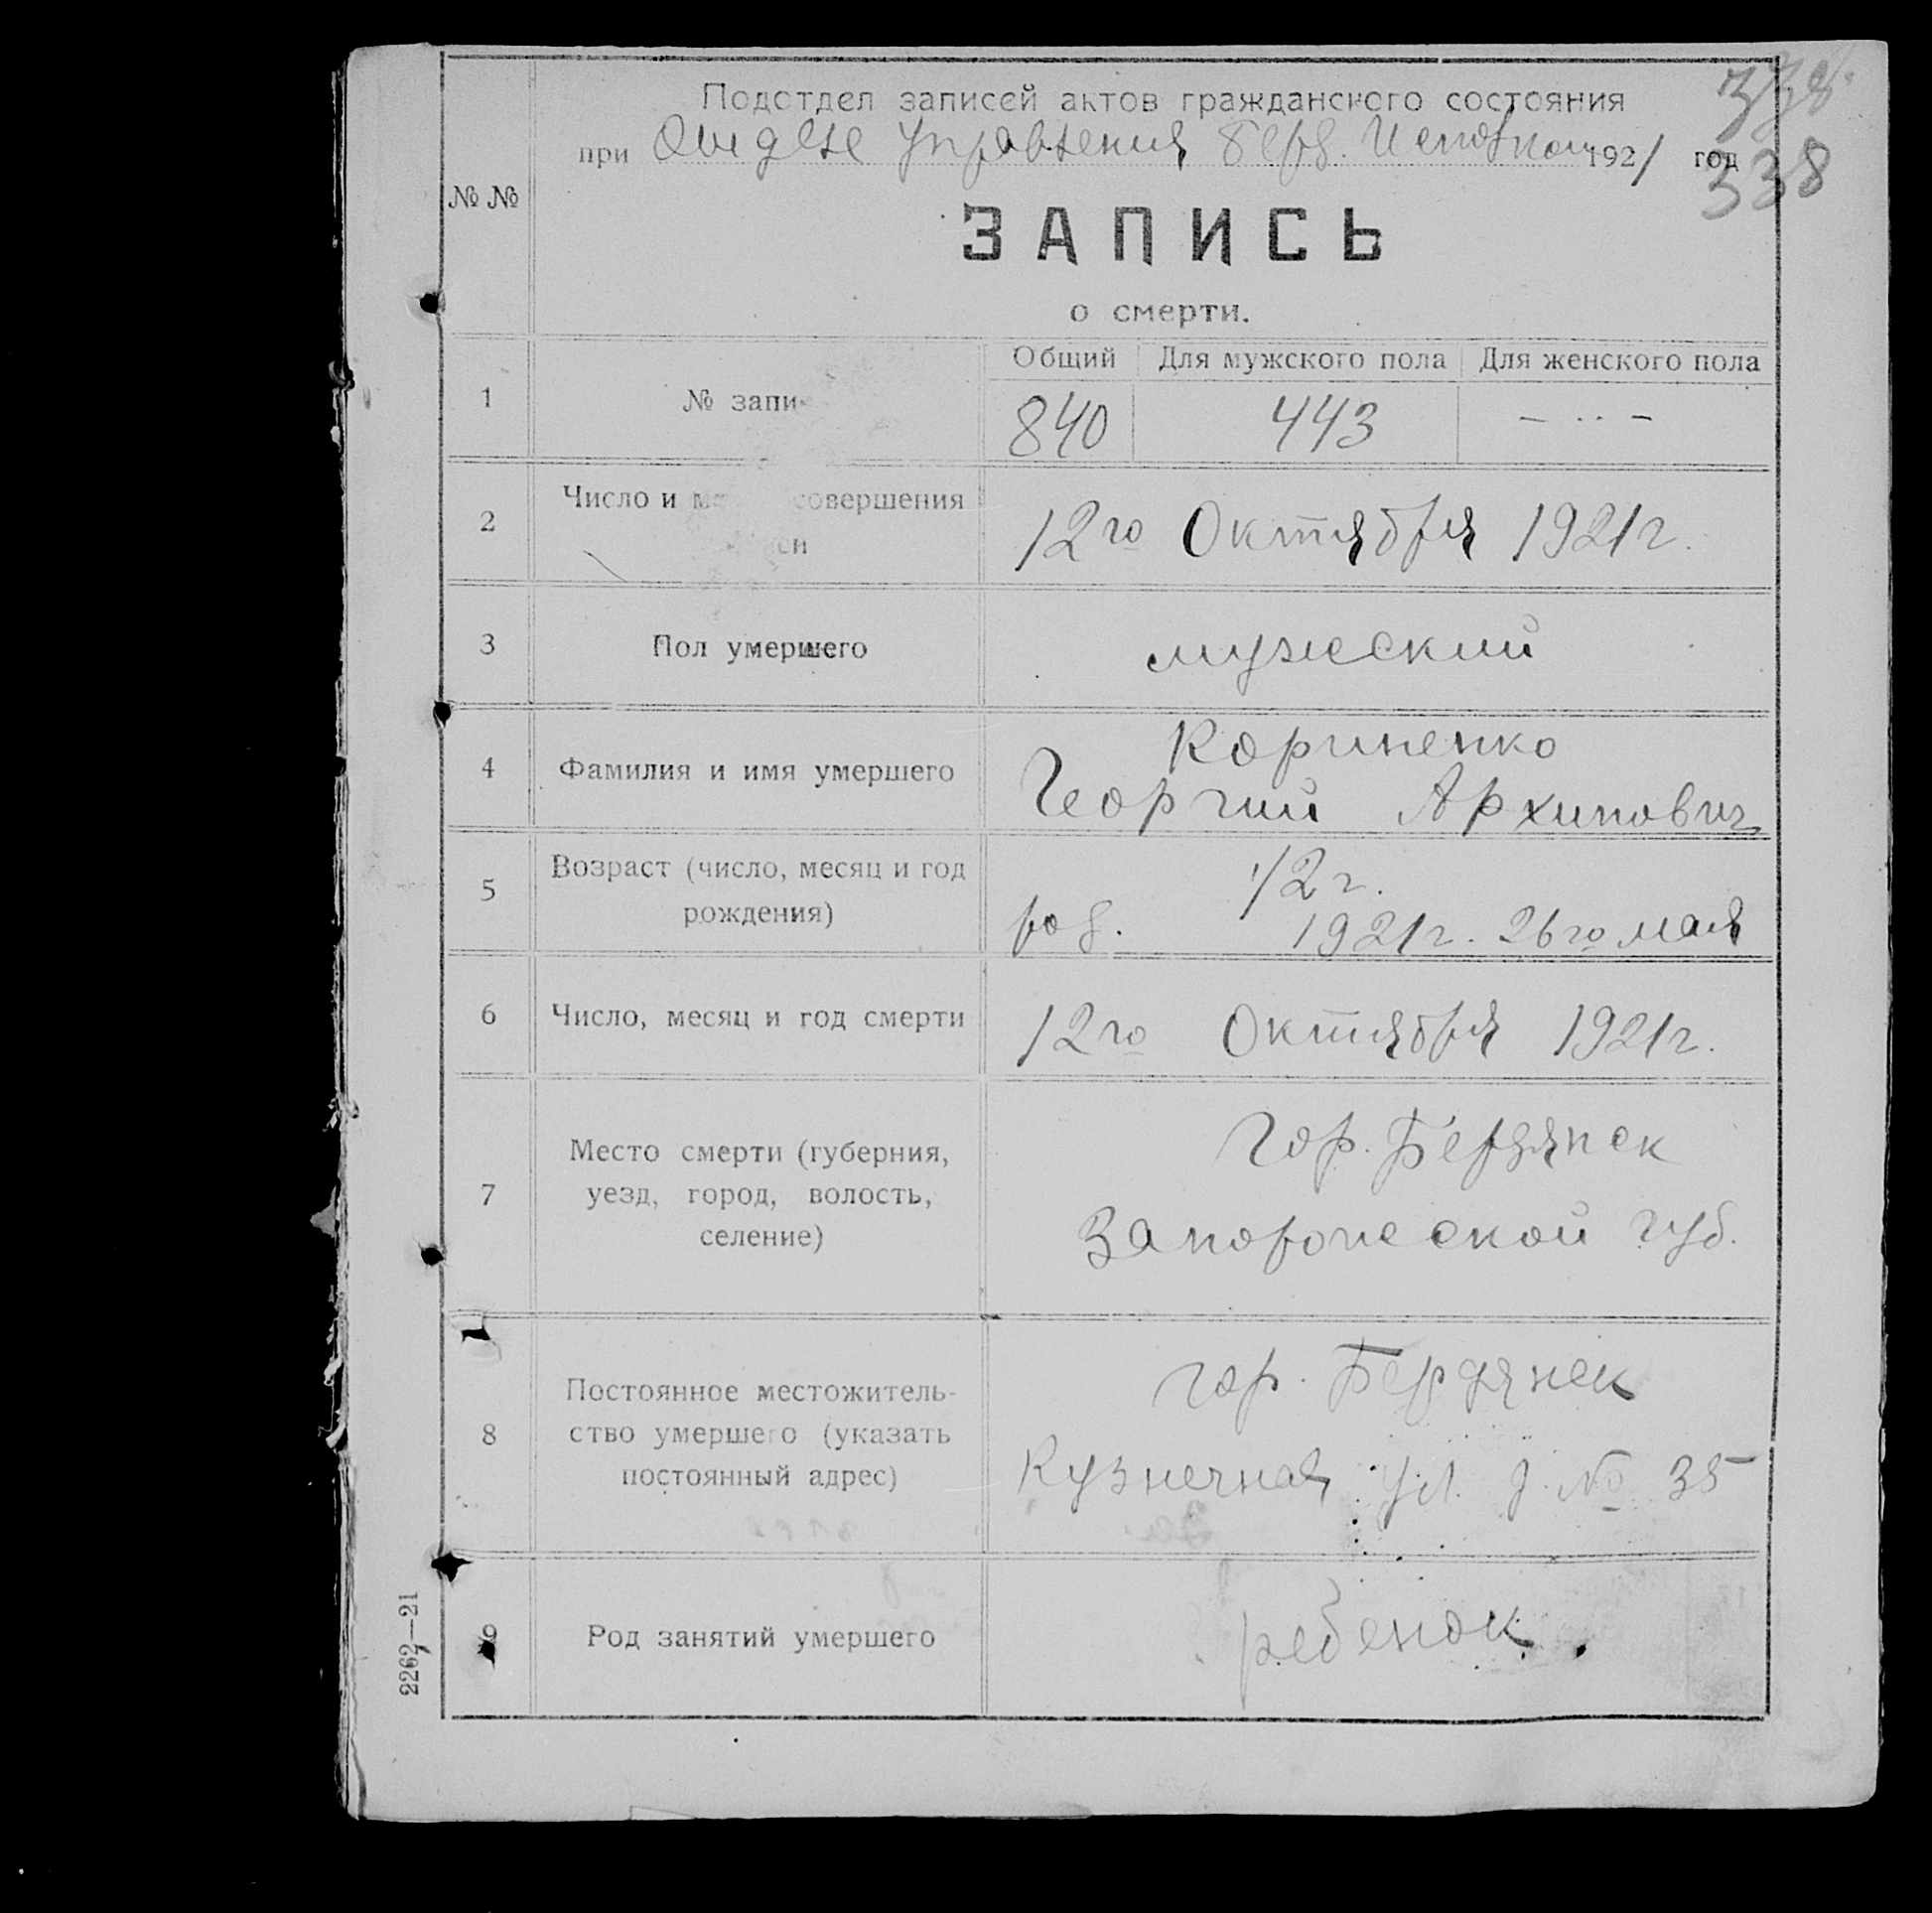 338
Подотдел записей актов гражданского состояния
при Отделе Управления Берд. Исполкома 1921 год
338
№ №
ЗАПИСЬ
о смерти.
Общий Для мужского пола Для женского пола
1 № запи 840 443 — ·· —
2 Число и м совершения
си
12го Октября 1921г.
3 Пол умершего мужеский
4 Фамилия и имя умершего
Кориненко
Георгий Архипович
5 Возраст (число, месяц и год
рождения)
1/2 г.
род. 1921г. 26го мая
6 Число, месяц и год смерти 12го Октября 1921г.
7 Место смерти (губерния,
уезд, город, волость,
селение)
Гор. Бердянск
Запорожской губ.
8 Постоянное местожитель-
ство умершего (указать
постоянный адрес)
гор. Бердянск
Кузнечная ул. д. № 35
9 Род занятий умершего ребенок.
2262—21